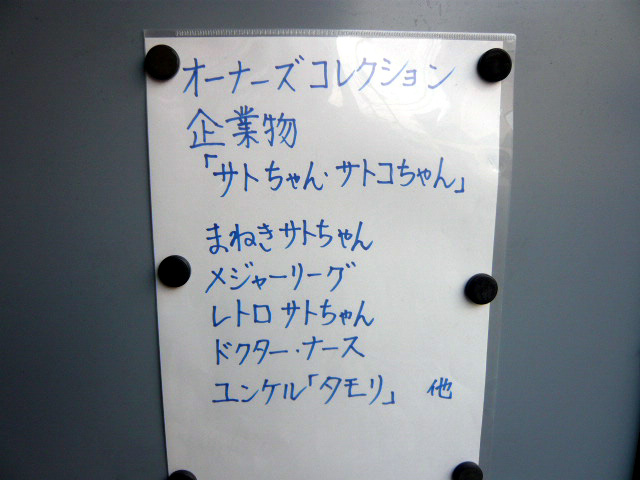 オーナーズコレクション
企業物
「サトちゃん・サトコちゃん」
まねきサトちゃん
メジャーリーグ
レトロサトちゃん
ドクター・ナース
ユンケル「タモリ」 他